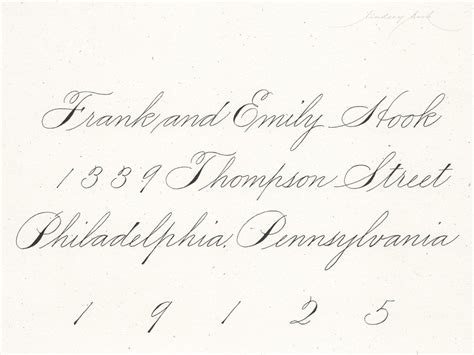 Frank and Emily Hook
1339 Thompson Street
Philadelphia, Pennsylvania
19125